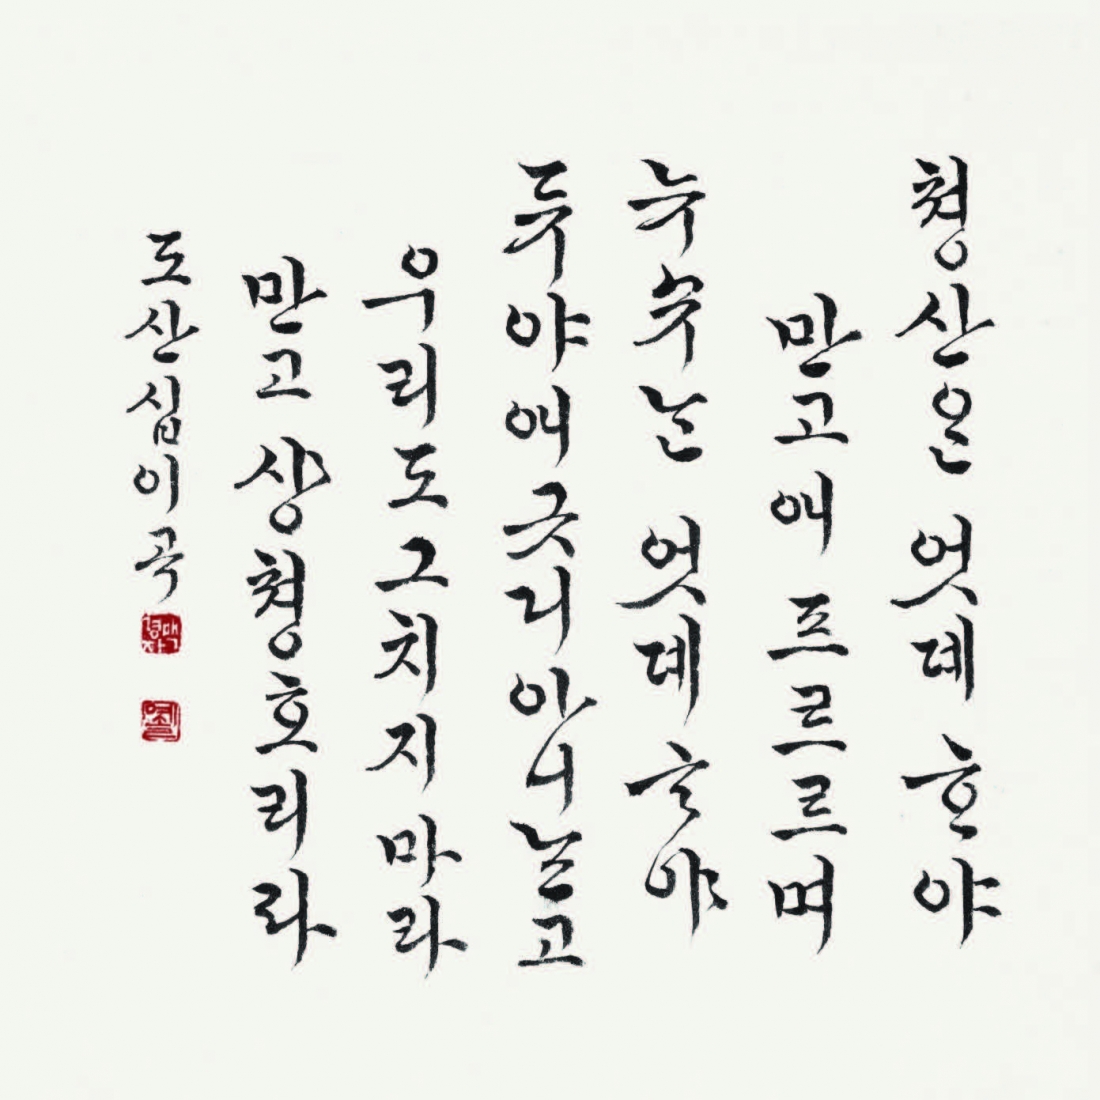 쳥산은 엇뎨 ᄒᆞ야
만고애 프르르며
뉴슈ᄂᆞᆫ 엇뎨 ᄒᆞ야
듀야애 긋디 아니ᄂᆞᆫ고
우리도 그치지 마라
만고 샹쳥호리라
도산십이곡